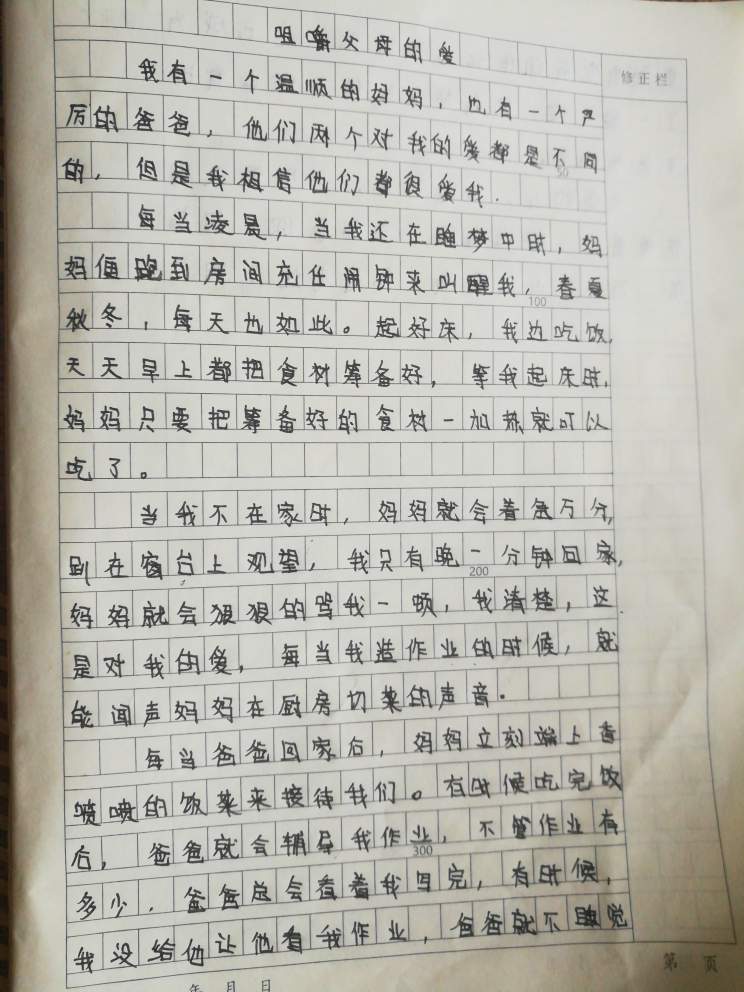 咀嚼父母的爱
修正栏
我有一个温顺的妈妈，也有一个严
厉的爸爸，他们两个对我的爱都是不同
的，但是我相信他们都很爱我．
每当凌晨，当我还在睡梦中时，妈
妈便跑到房间充任闹钟来叫醒我，春夏
100
秋冬，每天也如此。起好床，我边吃饭，
天天早上都把食材筹备好，等我起床时，
妈妈只要把筹备好的食材一加热就可以
吃了。
当我不在家时，妈妈就会着急万分，
趴在窗台上观望，我只有晚一分钟回家，
200
妈妈就会狠狠的骂我一顿，我清楚，这
是对我的爱，每当我造作业的时候，就
能闻声妈妈在厨房切菜的声音．
每当爸爸回家后，妈妈立刻端上香
喷喷的饭菜来接待我们。有时候吃完饭
后，爸爸就会辅导我作业，不管作业有
300
多少，爸爸总会看着我写完，有时候，
我没给他让他看我作业，爸爸就不睡觉
年 月 日
第 页